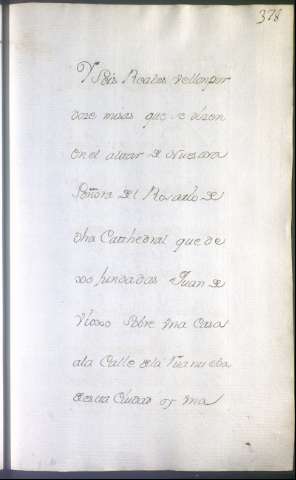 378
Y Seis Reales vellon por
doze misas que se dizen
en el altar de Nuestra
Señora del Rosario de
dha Cathedral que de
xo fundadas Juan de
sobre una Casa
ala Calle de la Rua nueba
desta Ciudad os una